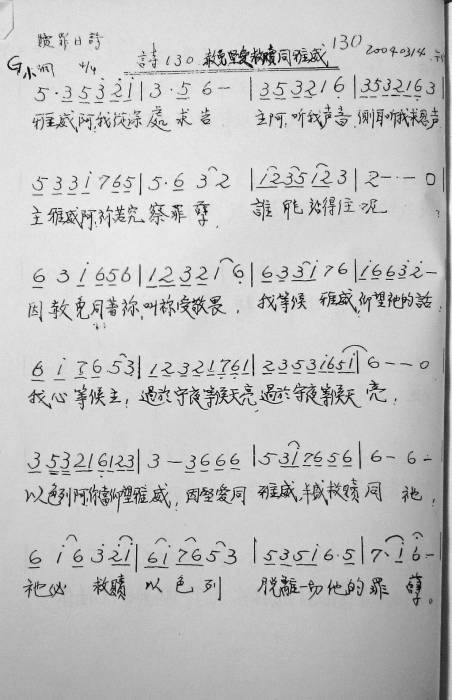 贖罪日詩
G小調 4/4 詩130 赦免堅愛救贖同雅威 130 20040314
5·35321|3·56-|353216|3532163
雅威阿,我從深處求告 主阿,聽我声音,側耳聽我求恩声
5331765|5·632|1235123|2--0
主雅威阿,祢若究察罪孽 誰能站得住呢?
631656|123216|633176|16632-
因赦免同著祢,叫祢受敬畏,我等候雅威,仰望祂的話,
617653|12321761|23531651|6--0
我心等候主,過於守夜等候天亮,過於守夜等候天亮,
353216123|3-3666|5317656|6-6-
以色列阿,你當仰望雅威,因堅愛同雅威,豐盛救贖同祂,
616321|617653|53516·5|7·16-
祂必救贖以色列 脫離一切他的罪孽。